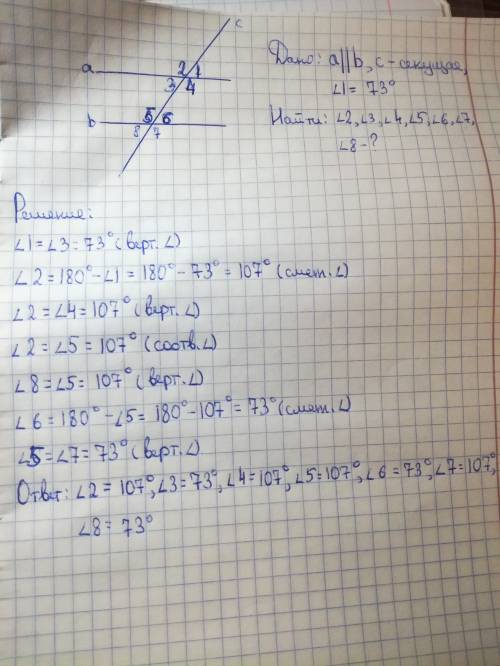 c
Дано: a||b, c - секущая,
∠1 = 73°
a 2 1
3 4
Найти: ∠2, ∠3, ∠4, ∠5, ∠6, ∠7,
∠8 - ?
b 5 6
8 7
Решение:
∠1 = ∠3 = 73° (верт. ∠)
∠2 = 180° - ∠1 = 180° - 73° = 107° (смеж. ∠)
∠2 = ∠4 = 107° (верт. ∠)
∠2 = ∠5 = 107° (соотв. ∠)
∠8 = ∠5 = 107° (верт. ∠)
∠6 = 180° - ∠5 = 180° - 107° = 73° (смеж. ∠)
∠5 = ∠7 = 73° (верт. ∠)
Ответ: ∠2 = 107°, ∠3 = 73°, ∠4 = 107°, ∠5 = 107°, ∠6 = 73°, ∠7 = 107°,
∠8 = 73°